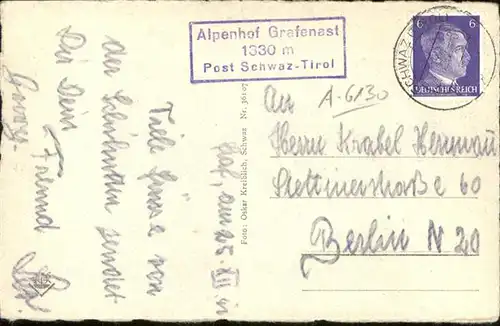 Alpenhof Grafenast
1330 m
Post Schwaz-Tirol
6 6
DEUTSCHES REICH
SCHWAZ
A-6130
An
Herrn Krabel Hermann
Stettinerstraße 60
Berlin N 20
Foto: Oskar Kreibich, Schwaz Nr. 36107
Viele Grüsse von
der sendet
Dir Dein
Freund